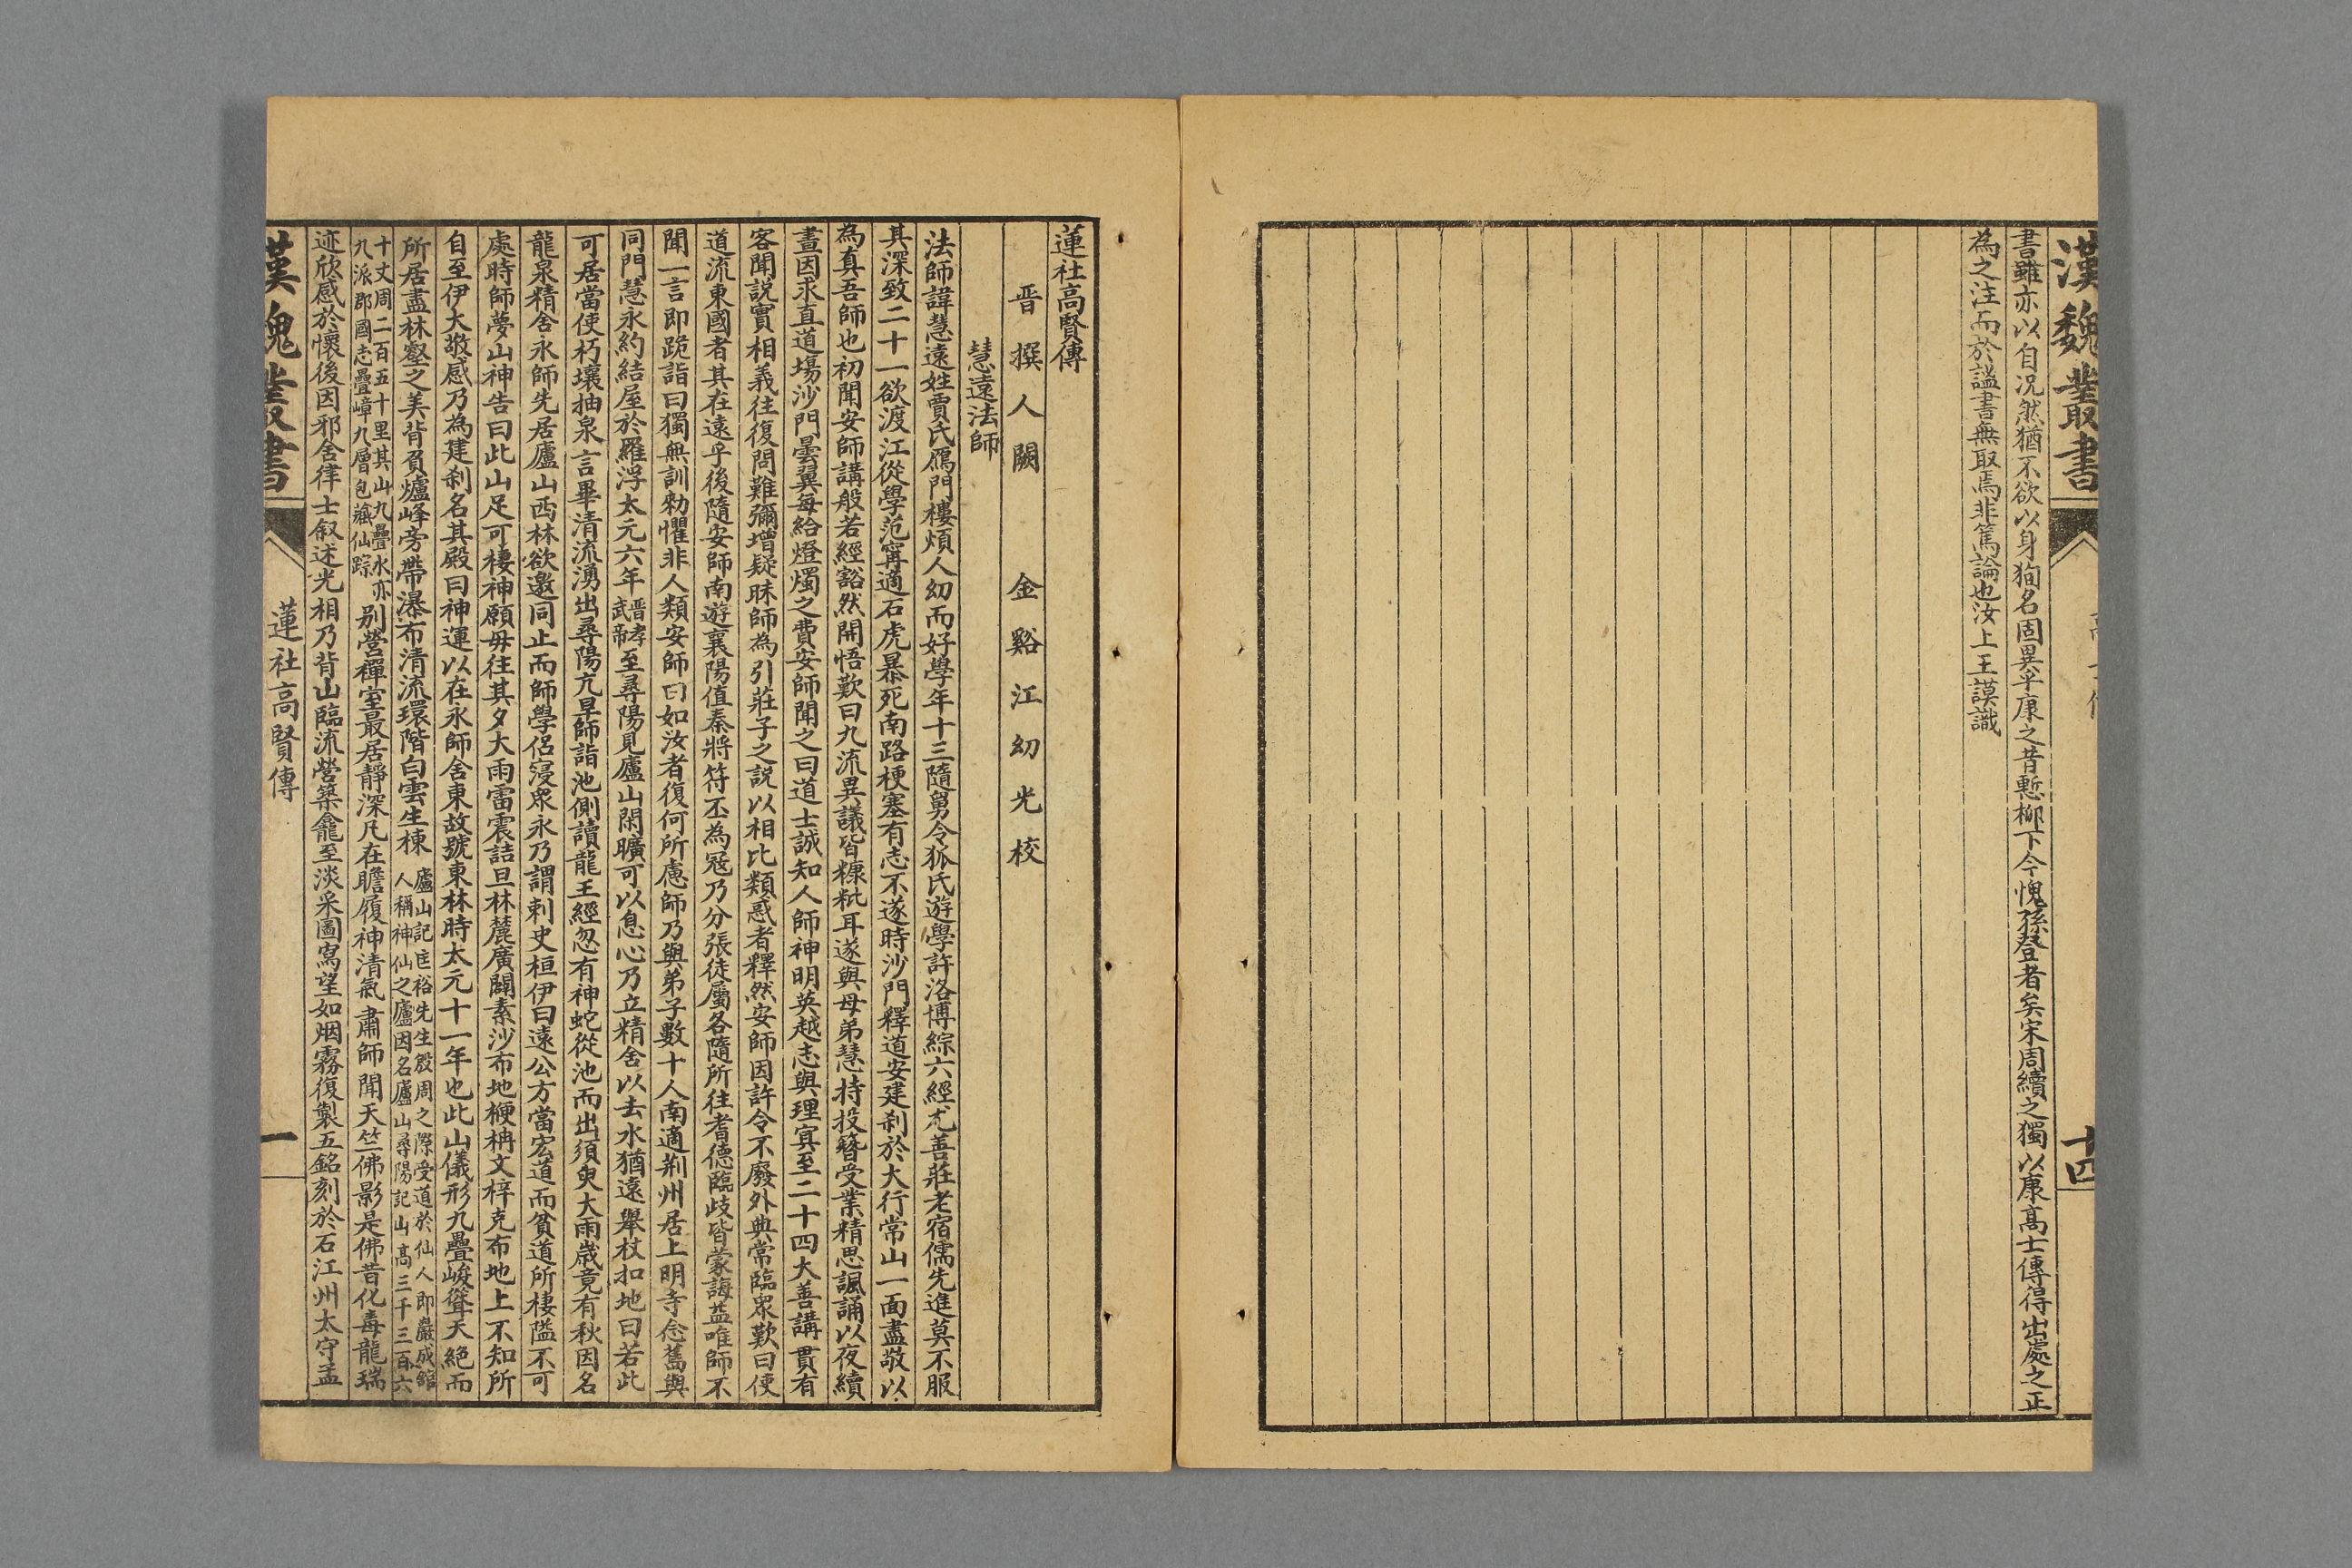 漢魏叢書
十四
書雖亦以自況然猶不欲以身狥名固異乎康之昔慙柳下今愧孫登者矣宋周續之獨以康高士傳得出處之正
為之注而於謐書無取焉非篤論也汝上王謨識
蓮社高賢傳
晋撰人闕　金谿江幼光校
慧遠法師
法師諱慧遠姓賈氏鴈門樓煩人幼而好學年十三隨舅令狐氏遊學許洛博綜六經尤善莊老宿儒先進莫不服
其深致二十一欲渡江從學范甯適石虎暴死南路梗塞有志不遂時沙門釋道安建刹於大行常山一面盡敬以
為真吾師也初聞安師講般若經豁然開悟歎曰九流異議皆糠粃耳遂與母弟慧持投簪受業精思諷誦以夜續
晝因求直道場沙門曇翼每給燈燭之費安師聞之曰道士誠知人師神明英越志與理冥至二十四大善講貫有
客聞說實相義往復問難彌增疑昧師為引莊子之說以相比類惑者釋然安師因許令不廢外典常臨眾歎曰使
道流東國者其在遠乎後隨安師南遊襄陽值秦將符丕為冦乃分張徒屬各隨所往耆德臨歧皆蒙誨益唯師不
聞一言即跪詣曰獨無訓勑懼非人類安師曰如汝者復何所慮師乃與弟子數十人南適荊州居上明寺念舊與
同門慧永約結屋於羅浮太元六年晋孝武帝至尋陽見廬山閑曠可以息心乃立精舍以去水猶遠舉杖扣地曰若此
可居當使朽壤抽泉言畢清流湧出尋陽亢旱師詣池側讀龍王經忽有神蛇從池而出須臾大雨歲竟有秋因名
龍泉精舍永師先居廬山西林欲邀同止而師學侶寖眾永乃謂刺史桓伊曰遠公方當宏道而貧道所棲隘不可
處時師夢山神告曰此山足可棲神願毋往其夕大雨雷震詰旦林麓廣闢素沙布地楩柟文梓充布地上不知所
自至伊大敬感乃為建刹名其殿曰神運以在永師舍東故號東林時太元十一年也此山儀形九疊峻聳天絕而
所居盡林壑之美背負爐峰旁帶瀑布清流環階白雲生棟廬山記匡裕先生殷周之際受道於仙人即巖成舘人稱神仙之廬因名廬山尋陽記山高三千三百六
十丈周二百五十里其山九疊水亦九派郡國志疊嶂九層包藏仙踪別營禪室最居靜深凡在瞻履神清氣肅師聞天竺佛影是佛昔化毒龍瑞
迹欣感於懷後因邪舍律士叙述光相乃背山臨流營築龕室淡采圖寫望如烟霧復製五銘刻於石江州太守孟
漢魏叢書
蓮社高賢傳
一